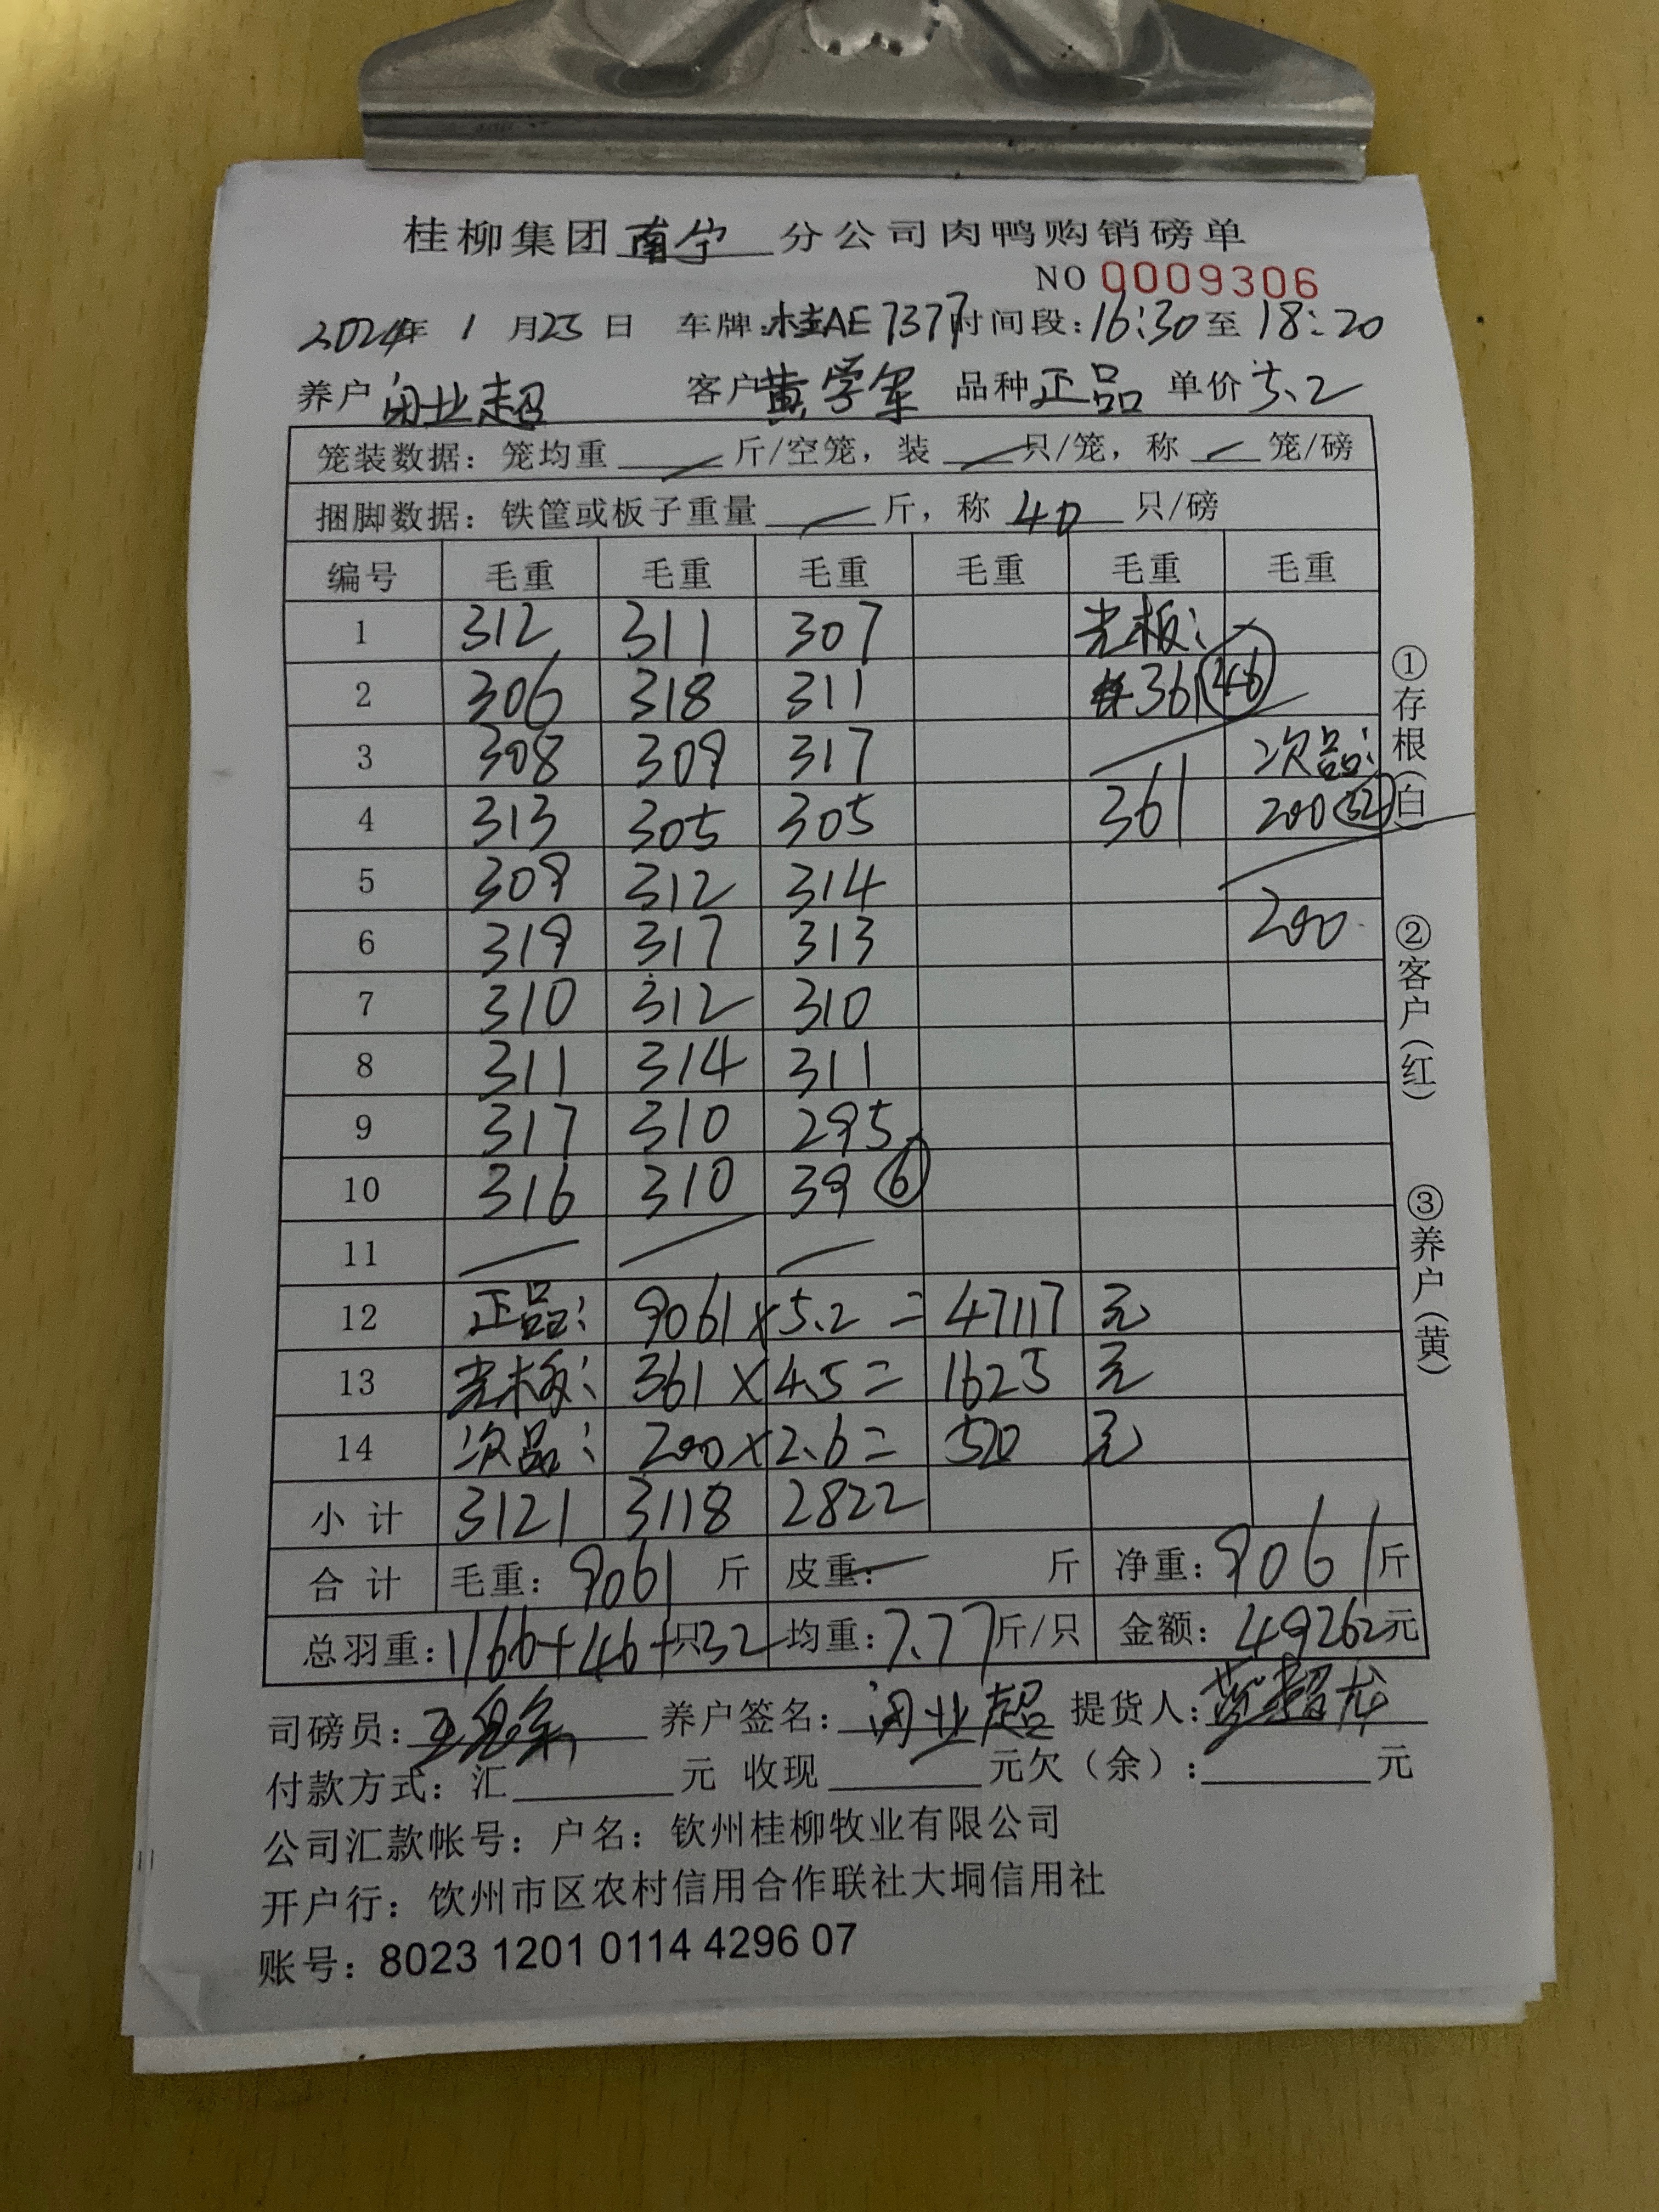 桂柳集团南宁分公司肉鸭购销磅单
NO 0009306
2024年 1 月 23 日 车牌:桂AE7377 时间段:16:30至18:20
养户 闭业超 客户 黄学军 品种 正品 单价 5.2
笼装数据: 笼均重 — 斤/空笼, 装 — 只/笼, 称 — 笼/磅
捆脚数据: 铁筐或板子重量 — 斤, 称 40 只/磅
编号 毛重 毛重 毛重 毛重 毛重 毛重
1 312 311 307 光板:
2 306 318 311 361 (46)
3 308 309 317 次品:
4 313 305 305 361 200 (32)
5 309 312 314
6 319 317 313 200
7 310 312 310
8 311 314 311
9 317 310 295
10 316 310 39 (6)
11 — — —
12 正品: 9061 × 5.2 = 47117 元
13 光板: 361 × 4.5 = 1625 元
14 次品: 200 × 2.6 = 520 元
小计 3121 3118 2822
合计 毛重: 9061 斤 皮重: — 斤 净重: 9061 斤
总羽重: 1166+46+32 只 均重: 7.77 斤/只 金额: 49262 元
司磅员: 养户签名: 闭业超 提货人:
付款方式: 汇 元 收现 元欠(余): 元
公司汇款帐号: 户名: 钦州桂柳牧业有限公司
开户行: 钦州市区农村信用合作联社大垌信用社
账号: 8023 1201 0114 4296 07
①存根(白)
②客户(红)
③养户(黄)